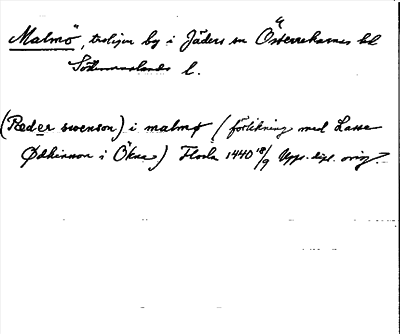 Malmö, troligen by i Jäders sn Österrekarnes hd
Södermanlands l.
(Peder swenson) i malmø (förlikning med Lasse
Ødkinson i Ökna) Floda 1440 18/9 Upps. dipl. orig.